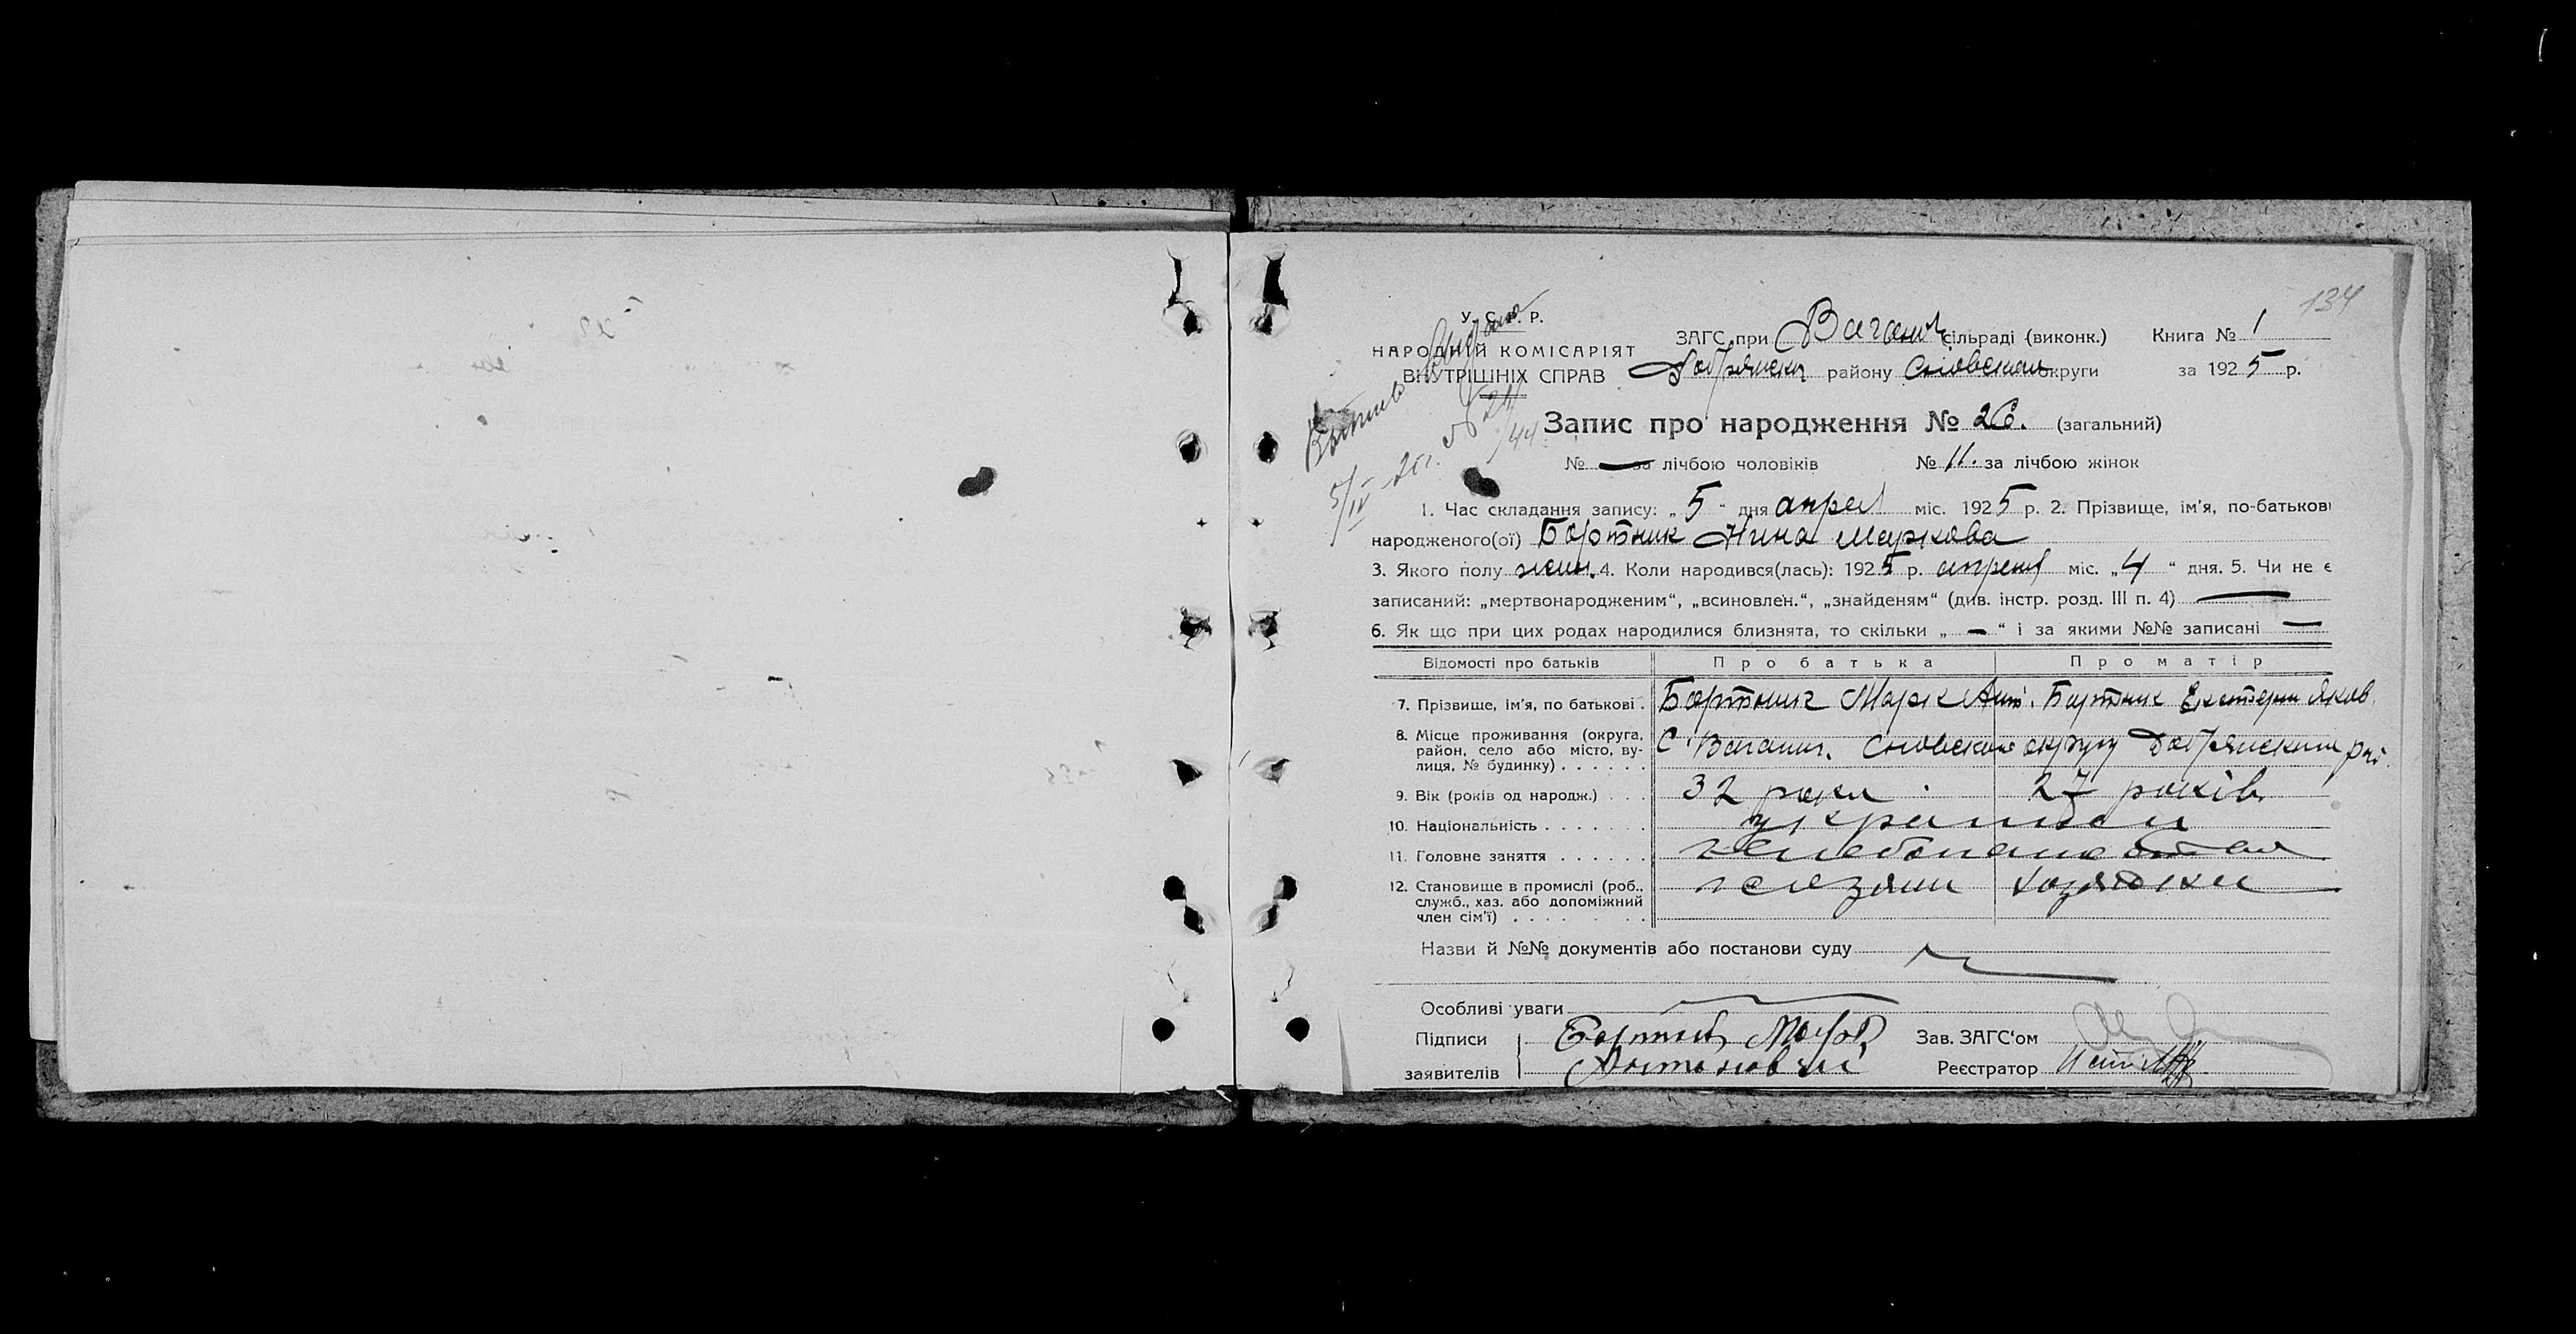 134
У. С. Р. Р.
НАРОДНІЙ КОМІСАРІЯТ
ВНУТРІШНІХ СПРАВ
ЗАГС при Ваганич сільраді (виконк.) Книга № 1
Добрянськ району Сновская округи за 1925 р.
Запис про народження № 26. (загальний)
№ — за лічбою чоловіків № 11. за лічбою жінок
5/IV
1. Час складання запису: „ 5 “ дня апрел міс. 1925 р. 2. Прізвище, ім'я, по-батькові
народженого(ої) Бортник Нина Маркова
3. Якого полу жен. 4. Коли народився(лась): 1925 р. апреля міс. „ 4 “ дня. 5. Чи не є
записаний: „мертвонародженим“, „всиновлен.“, „знайденям“ (див. інстр. розд. III п. 4) —
6. Як що при цих родах народилися близнята, то скільки „ — “ і за якими №№ записані —
Відомості про батьків Про батька Про матір
7. Прізвище, ім'я, по батькові . Бортник Марк Ант. Бортник Екатерин Яков.
8. Місце проживання (округа, район, село або місто, вулиця, № будинку) . . . . . . С. Ваганич. Сновской округу Добрянским рай.
9. Вік (років од народж.) . . . 32 роки 27 років.
10. Національність . . . . . . .
11. Головне заняття . . . . . .
12. Становище в промислі (роб., служб., хаз. або допоміжний член сім'ї) . . . . . . . . хозяйки
Назви й №№ документів або постанови суду
Особливі уваги
Підписи Бортник Марк Зав. ЗАГС'ом
заявителів Антонович Реєстратор